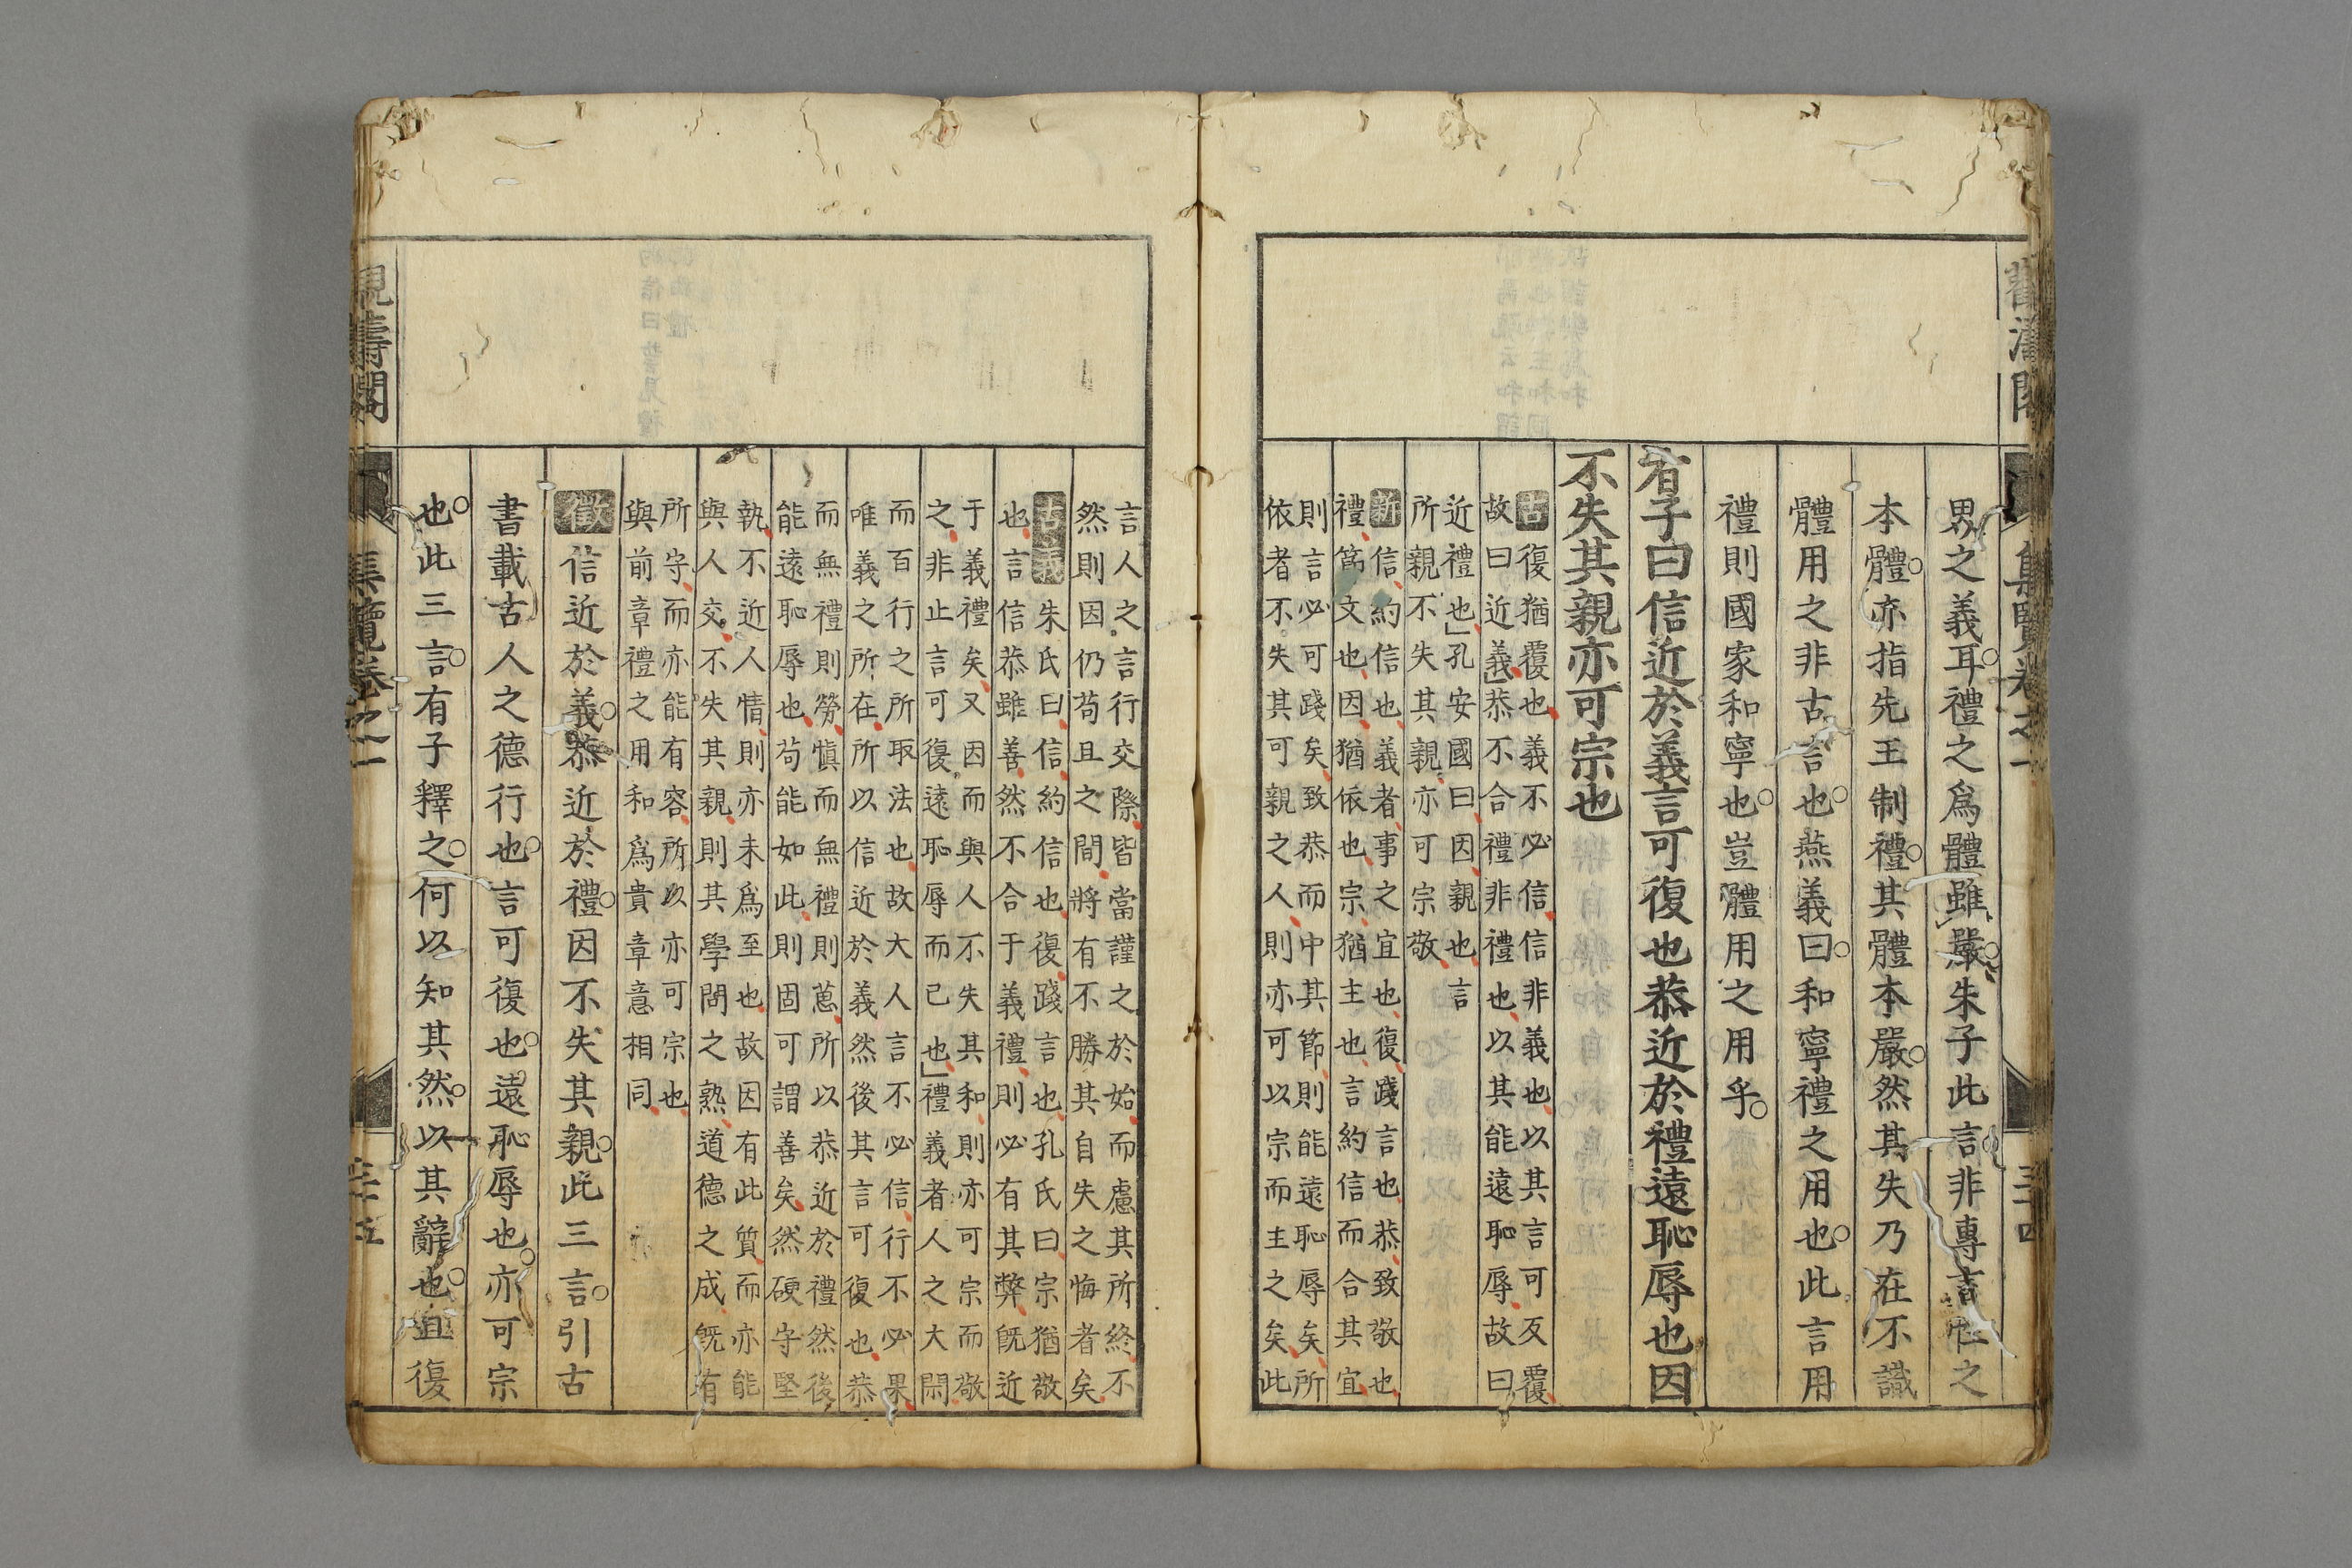 男之義耳禮之爲體雖嚴朱子此言非專言性之
本體亦指先王制禮其體本嚴然其失乃在不識
體用之非古言也燕義曰和寧禮之用也此言用
禮則國家和寧也豈體用之用乎
有子曰信近於義言可復也恭近於禮遠恥辱也因
不失其親亦可宗也
古復猶覆也義不必信信非義也以其言可反覆
故曰近義恭不合禮非禮也以其能遠恥辱故曰
近禮也孔安國曰因親也言
所親不失其親亦可宗敬
新信約信也義者事之宜也復踐言也恭致敬也
禮節文也因猶依也宗猶主也言約信而合其宜
則言必可踐矣致恭而中其節則能遠恥辱矣所
依者不失其可親之人則亦可以宗而主之矣此
集覽卷之一
三十四
言人之言行交際皆當謹之於始而慮其所終不
然則因仍苟且之間將有不勝其自失之悔者矣
古義朱氏曰信約信也復踐言也孔氏曰宗猶敬
也言信恭雖善然不合于義禮則必有其弊旣近
于義禮矣又因而與人不失其和則亦可宗而敬
之非止言可復遠恥辱而已也禮義者人之大閑
而百行之所取法也故大人言不必信行不必果
唯義之所在所以信近於義然後其言可復也恭
而無禮則勞愼而無禮則葸所以恭近於禮然後
能遠恥辱也苟能如此則固可謂善矣然硬守堅
執不近人情則亦未爲至也故因有此質而亦能
與人交不失其親則其學問之熟道德之成旣有
所守而亦能有容所以亦可宗也
與前章禮之用和爲貴章意相同
徵信近於義恭近於禮因不失其親此三言引古
書載古人之德行也言可復也遠恥辱也亦可宗
也此三言有子釋之何以知其然以其辭也且復
觀濤閣
集覽卷之一
三十五